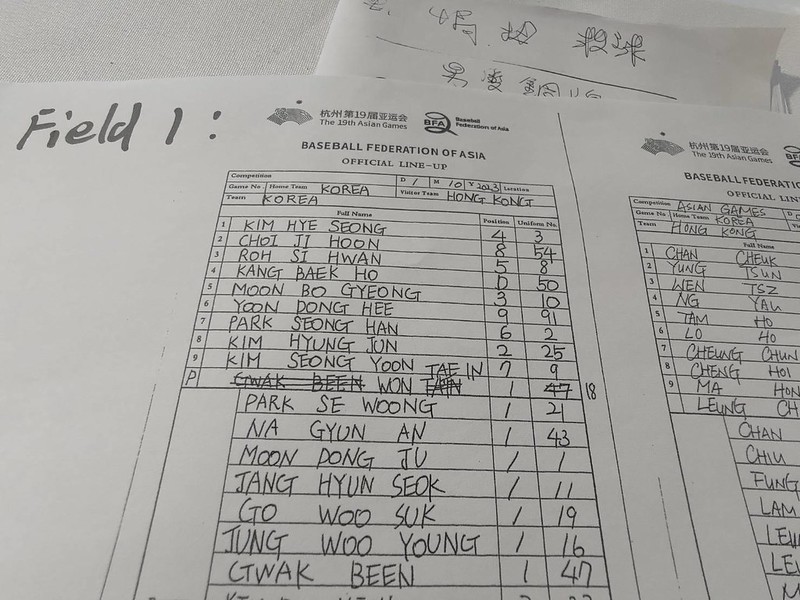 投球
Field 1:
杭州第19届亚运会
The 19th Asian Games
BFA Baseball Federation of Asia
BASEBALL FEDERATION OF ASIA
OFFICIAL LINE-UP
Competition D 1 M 10 Y 2023 Location
Game No. Home Team KOREA Visitor Team HONG KONG
Team KOREA
Full Name Position Uniform No.
1 KIM HYE SEONG 4 3
2 CHOI JI HOON 8 54
3 ROH SI HWAN 5 8
4 KANG BAEK HO D 50
5 MOON BO GYEONG 3 10
6 YOON DONG HEE 9 91
7 PARK SEONG HAN 6 2
8 KIM HYUNG JUN 2 25
9 KIM SEONG YOON 7 9
P GWAK BEEN WON TAE IN 1 47 18
PARK SE WOONG 1 21
NA GYUN AN 1 43
MOON DONG JU 1 1
JANG HYUN SEOK 1 11
GO WOO SUK 1 19
JUNG WOO YOUNG 1 16
GWAK BEEN 1 47
杭州第19届亚运会
The 19th Asian Games
BASEBALL FEDERATIO
OFFICIAL LIN
Competition ASIAN GAMES
Game No. Home Team KOREA
Team HONG KONG
Full Name
1 CHAN CHEUK
2 YUNG TSUN
3 WEN TSZ
4 NG YAU
5 TAM HO
6 LO HO
7 CHEUNG CHUN
8 CHENG HOI
9 MA HON
LEUNG CH
CHAN
CHIU
FUNG
LAM
LEU
LE